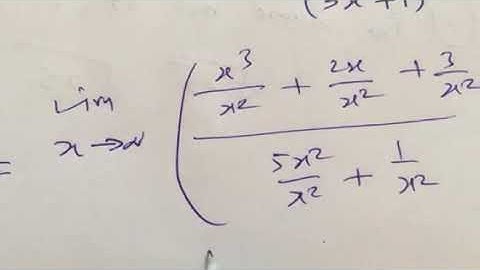 (5x+1)
= lim x→∞ ( (x³/x² + 2x/x² + 3/x²) / (5x²/x² + 1/x²)